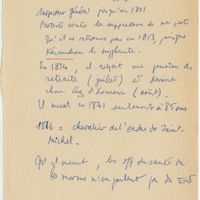 Inspecteur Général jusqu'en 1831
Proteste contre la suppression de son poste
Qu'il ne retrouve pas en 1813, puisque
Kéraudren le supplante.
En 1814, il reçoit une pension de
retraite (juillet) et devient
chev Lég d'honneur (août).
Il meurt en 1841 seulement à 85 ans
1816 = chevalier de l'ordre de Saint-
Michel.
Qd il meurt, les off. de santé de
la marine n'en parlent pas du tout